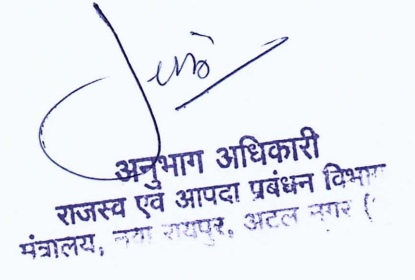 अनुभाग अधिकारी
राजस्व एवं आपदा प्रबंधन विभाग
मंत्रालय, नया रायपुर, अटल नगर (